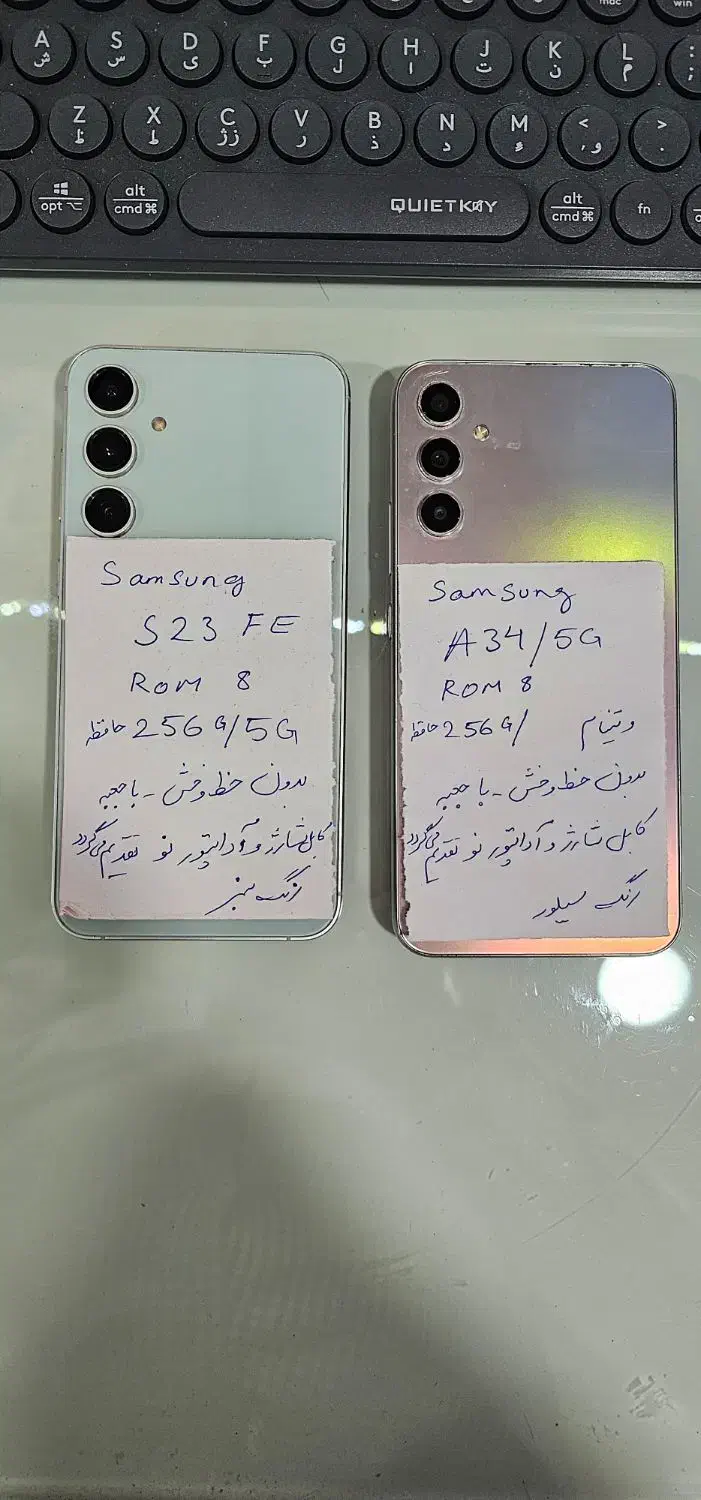 mac
win
A S D F G H J K L :
ش س ی ب ل ا ت ن م ;
Z X C V B N M < >
ظ ط ز ژ ر ذ د ئ و , .
opt
alt
cmd ⌘
QUIETKEY
alt
cmd ⌘
fn
Samsung
S23 FE
ROM 8
حافظه 256G/5G
بدون خط و خش - با جعبه
کابل شارژ و آداپتور نو تقدیم می‌گردد
رنگ سبز
Samsung
A34/5G
ROM 8
حافظه 256G/ ویتنام
بدون خط و خش - با جعبه
کابل شارژ و آداپتور نو تقدیم می‌گردد
رنگ سیلور